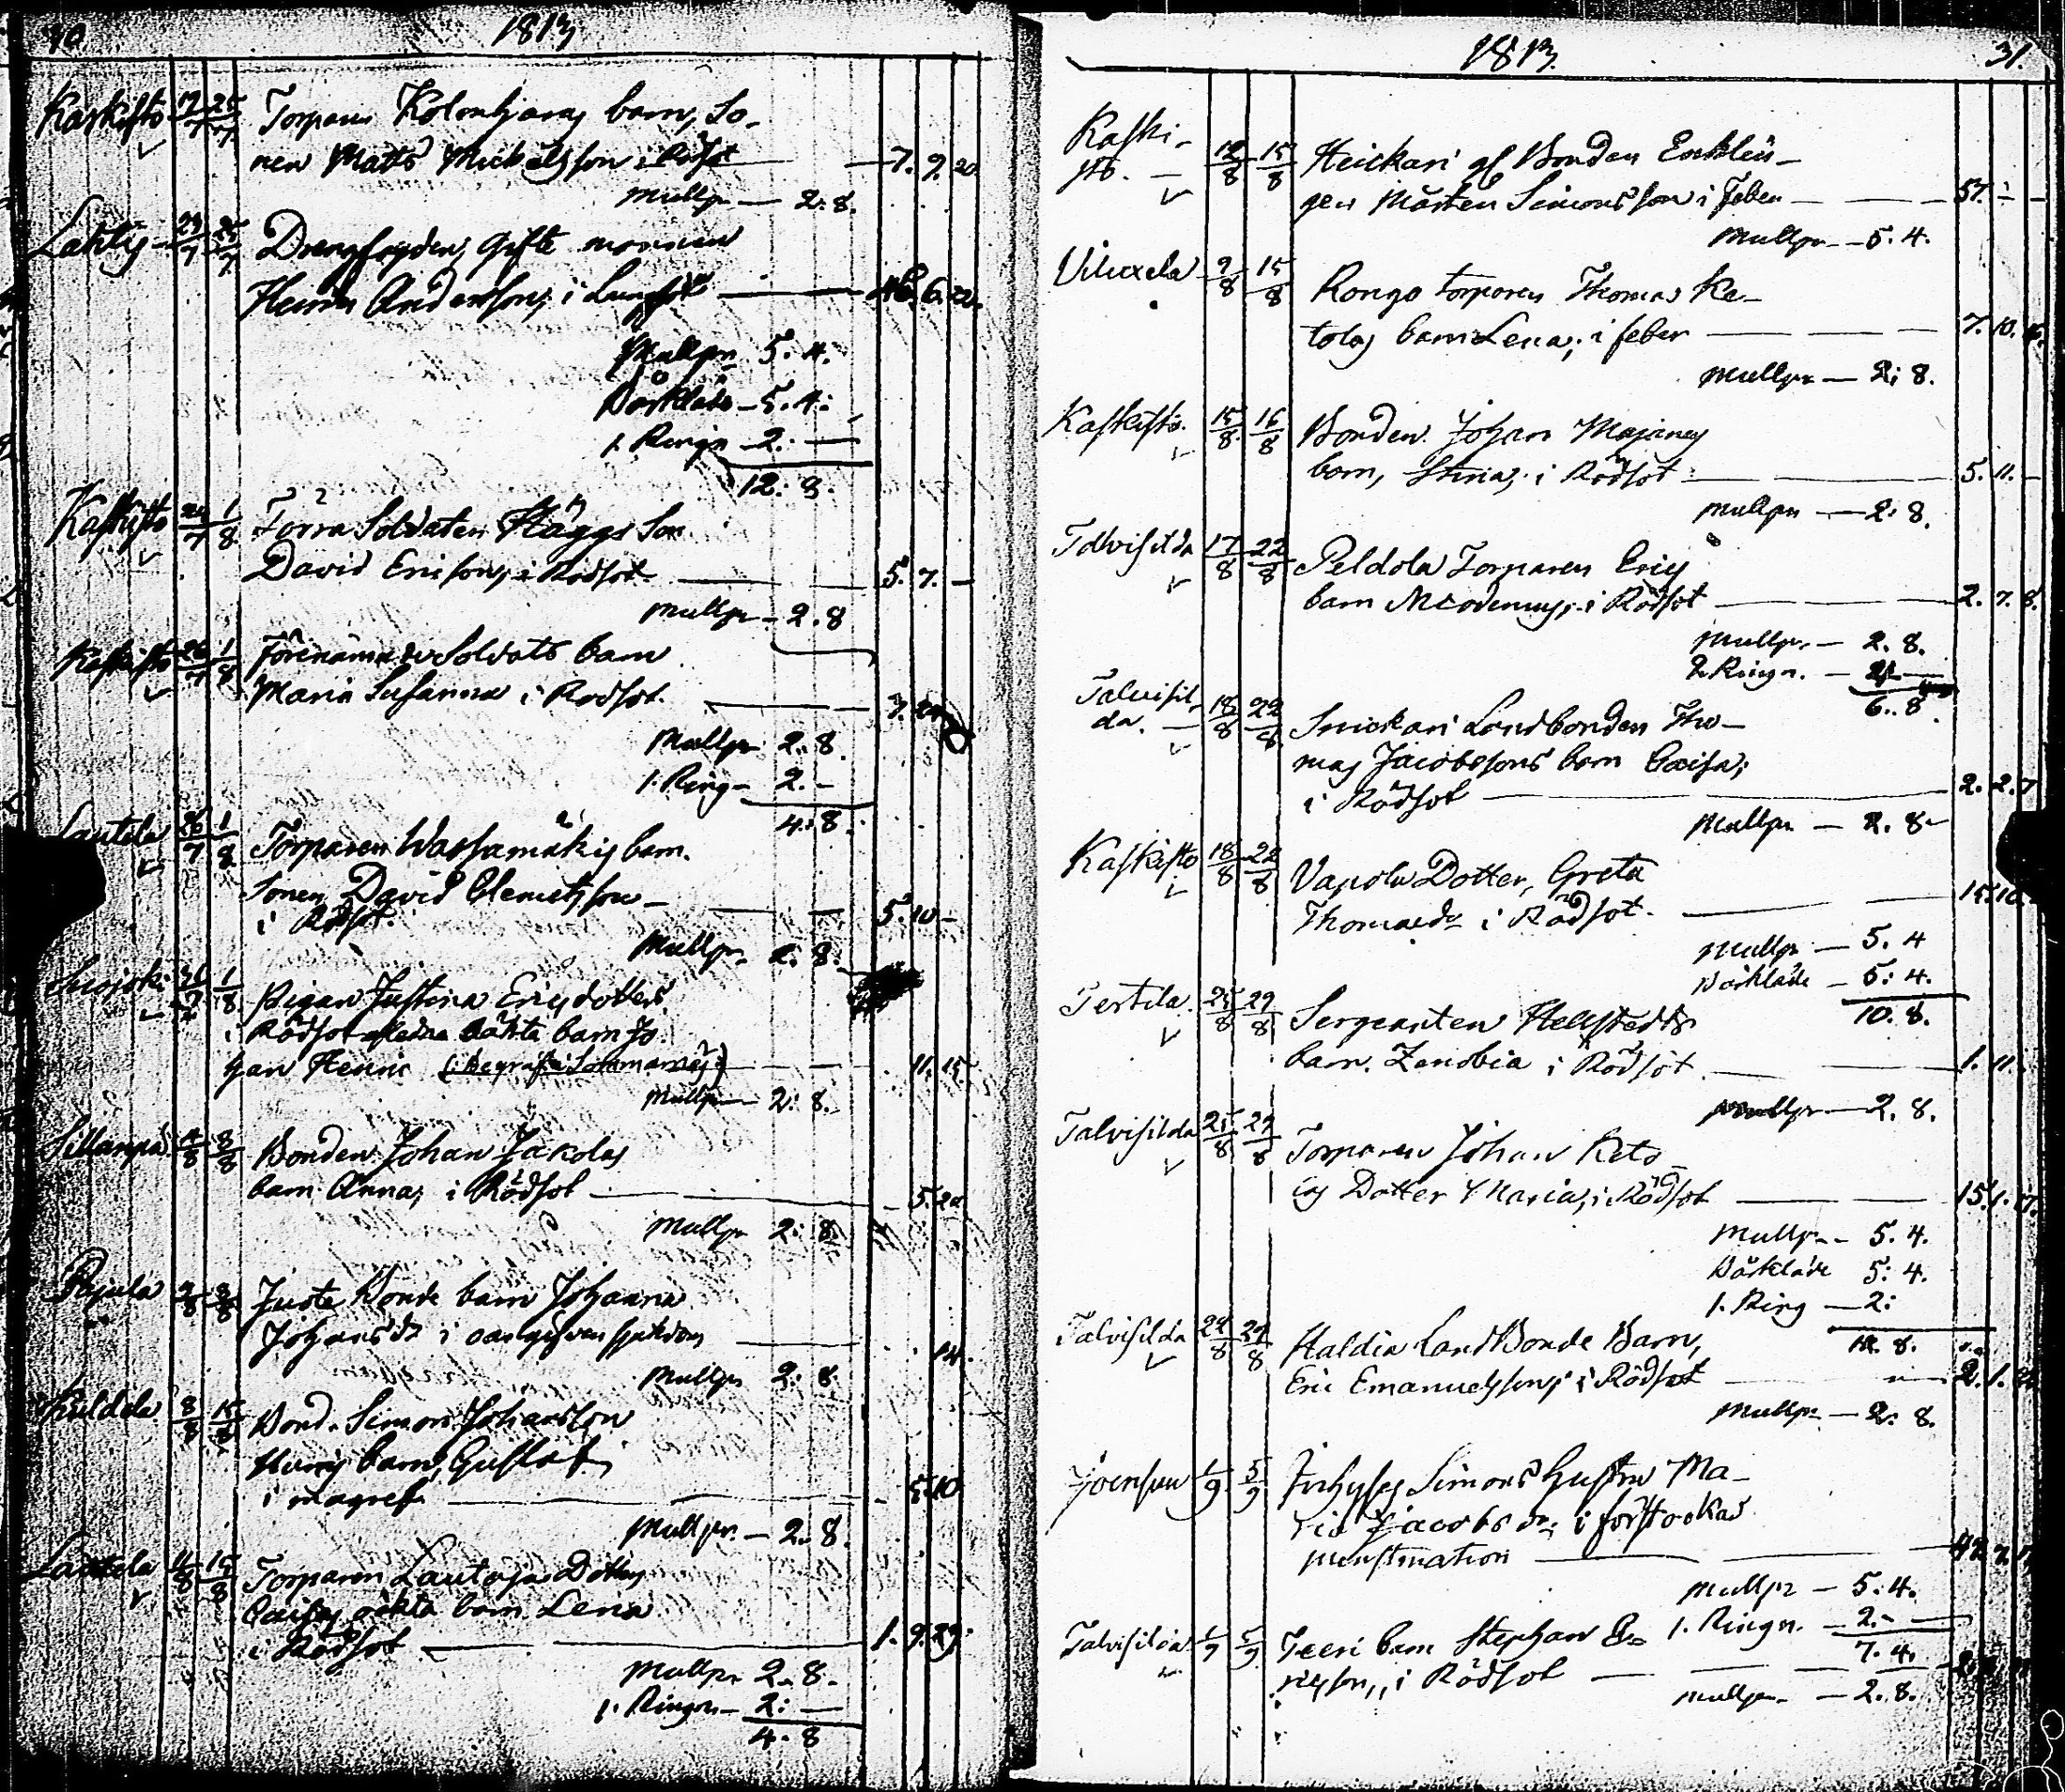 1813
Kaskisto 17/7 25/7 Torparen barn, So-
nen Matts Mickelsson i Rödsot 7. 9. 20.
Mullpn 2. 8.
Lahtis 23/7 25/7 Drengfogden, Gifte mannen
Henric Andersson, i Lungsot 6.
Mullpn 5. 4.
Bårkläde 5. 4.
1. Ringn 2. —
12. 8.
Kaskisto 1/8 Förra Soldaten Häggs Son
David Ericson, i Rödsot 5. 7. —
Mullpn 2. 8
Kaskisto 26/7 1/8 Förenämnde Soldats barn
Maria Susanna i Rodsot. 7.
Mullpn 2. 8.
1. Ring 2. —
4. 8.
Lautela 26/7 1/8 Torparen Wassamäkis barn.
Sonen David Clemetsson
i Rödsot. 5. 10 —
Mullpn. 2. 8.
1/8 Pigan Justina Ericsdotters
i Rödsot oäkta barn Jo-
han Henric (: begrafen i Sommarnäs :) 11. 15.
Mullpn 2. 8.
Sillanpä 4/8 8/8 Bonden Johan Jakolas
barn Anna, i Rödsot 5. 20
Mullpn 2. 8.
Pajula 8/8 Juste Bonde barn Johanna
Johansdr i oangifven sjukdom 14.
Mullpn 2. 8.
8/8 15/8 Bond. Simon Johansson
barn, Gustaf,
i magref 5. 10
Mullpn. 2. 8.
Lautela 11/8 15/8 Torparen Lautojas Dotters
Caisas oäkta barn Lena
i Rödsot 1. 9. 29.
Mullpn 2. 8.
1. Ringn 2. —
4. 8
1813. 31.
Kaski-
sto. 12/8 15/8 Heickari gl. Bonden Enklin-
gen Mårten Simonsson i Feber 57. — —
Mullpn 5. 4.
Viluxela 9/8 15/8 Rongo torparen Thomas Ke-
tolas barn Lena, i feber 7. 10.
Mullpn 2. 8.
Kaskisto. 15/8 16/8 Bonden Johan Majanens
barn, Stina, i Rödsot 5. 11. —
Mullpn 2. 8.
Talvisilda 17/8 22/8 Peldola Torparen Erics
barn Nicodemus, i Rödsot 2. 7. 8.
Mullpn. 2. 8.
2. Ringn. 4. —
6. 8.
Talvisil-
da. 18/8 22/8 Snickari Landbonden Tho-
mas Jacobssons barn Caisa,
i Rödsot 2. 2. 7
Mullpn 2. 8
Kaskisto 18/8 22/8 Vapola Dotter, Greta
Thomasdr i Rödsot. 15. 10.
Mullpn 5. 4
Bårkläde 5. 4.
10. 8.
Tertila. 25/8 29/8 Sergeanten Hellstedts
barn. Zenobia i Rödsot 1. 11.
Mullpn 2. 8.
Talvisilda 25/8 29/8 Torparen Johan Keto
Dotter Maria, i Rödsot 15. 1. 17.
Mullpn 5. 4.
Bårkläde 5. 4.
1. Ring 2.
12. 8.
Talvisilda 24/8 29/8 Haldin LandBonde Barn,
Eric Emanuelsson, i Rödsot 2. 1.
Mullpn 2. 8.
Joensuu 1/9 5/9 Inhyses Simons Hustru Ma-
ria Jacobs dr, i förstockad
menstruation 42. 2.
Mullpn 5. 4.
1. Ringn. 2. —
7. 4.
Talvisilda 1/9 5/9 Teeri barn Stephan E-
ricsson, i Rödsot
Mullpn 2. 8.